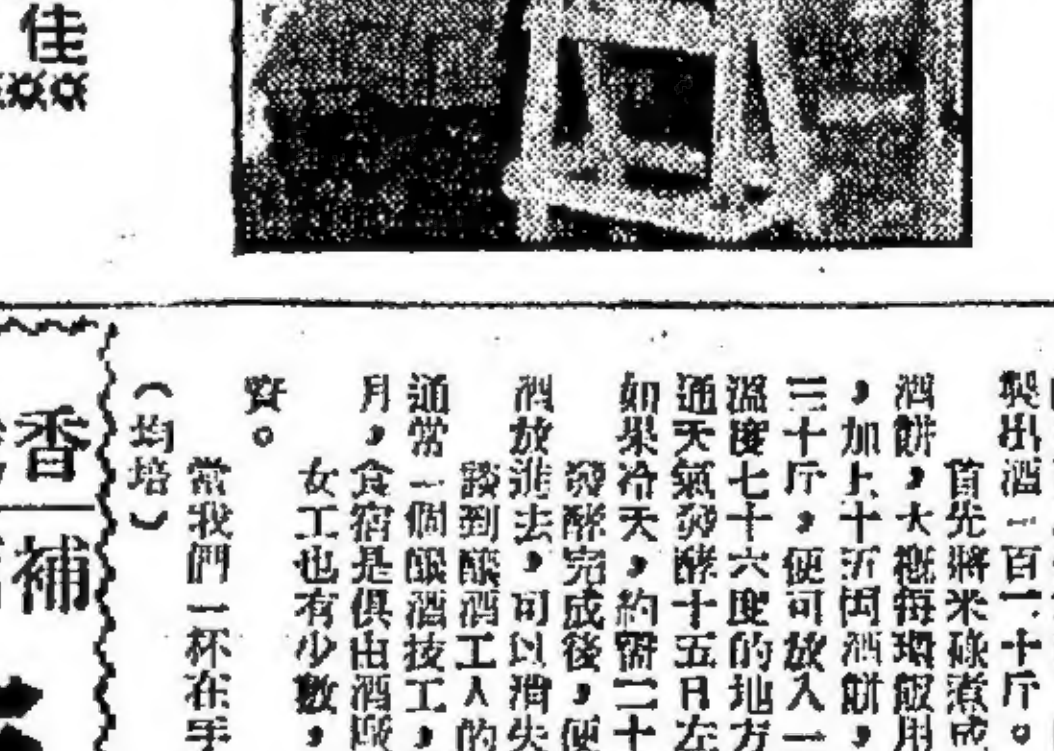 製出酒一百二十斤。
首先將米碌煮成
酒餅,大概每環飯用
,加上十五因酒餅,
三十斤,便可放入一
溫度七十六度的地方
通天氣發酵十五日左
如果冷天,約需二十
發酵完成後,便
酒放進去,可以消失
談到釀酒工人的
通常一個釀酒技工,
月,食宿是俱由酒廠
女工也有少數,
當我們一杯在手
(均培)
佳
香
補